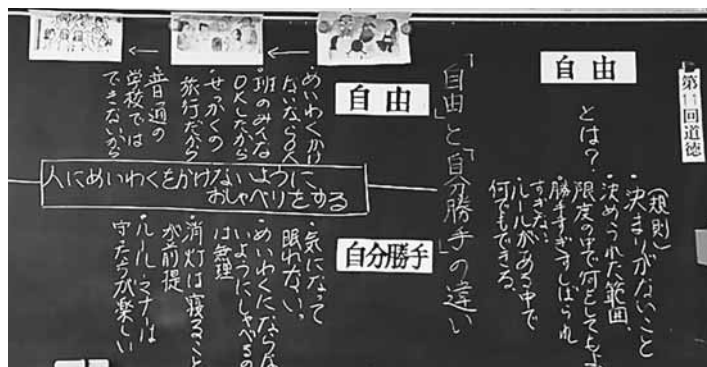 第11回道徳
自由
とは?
(規則)
・決まりがないこと
・決められた範囲、
限度の中で何としても
・勝手すぎずしばられ
すぎない
・ルールがある中で
何でもできる。
「自由」と「自分勝手」の違い
自由
・めいわくかけ
ないならOK
・班のみんな
OKしたから
・せっかくの
旅行だから
・普通の
学校では
できないから
人にめいわくをかけないように
おしゃべりをする
自分勝手
・気になって
眠れない。
・めいわくにならな
いようにしゃべるの
は無理
・消灯は寝ること
が前提
・ルール、マナーは
守ったらが楽しい